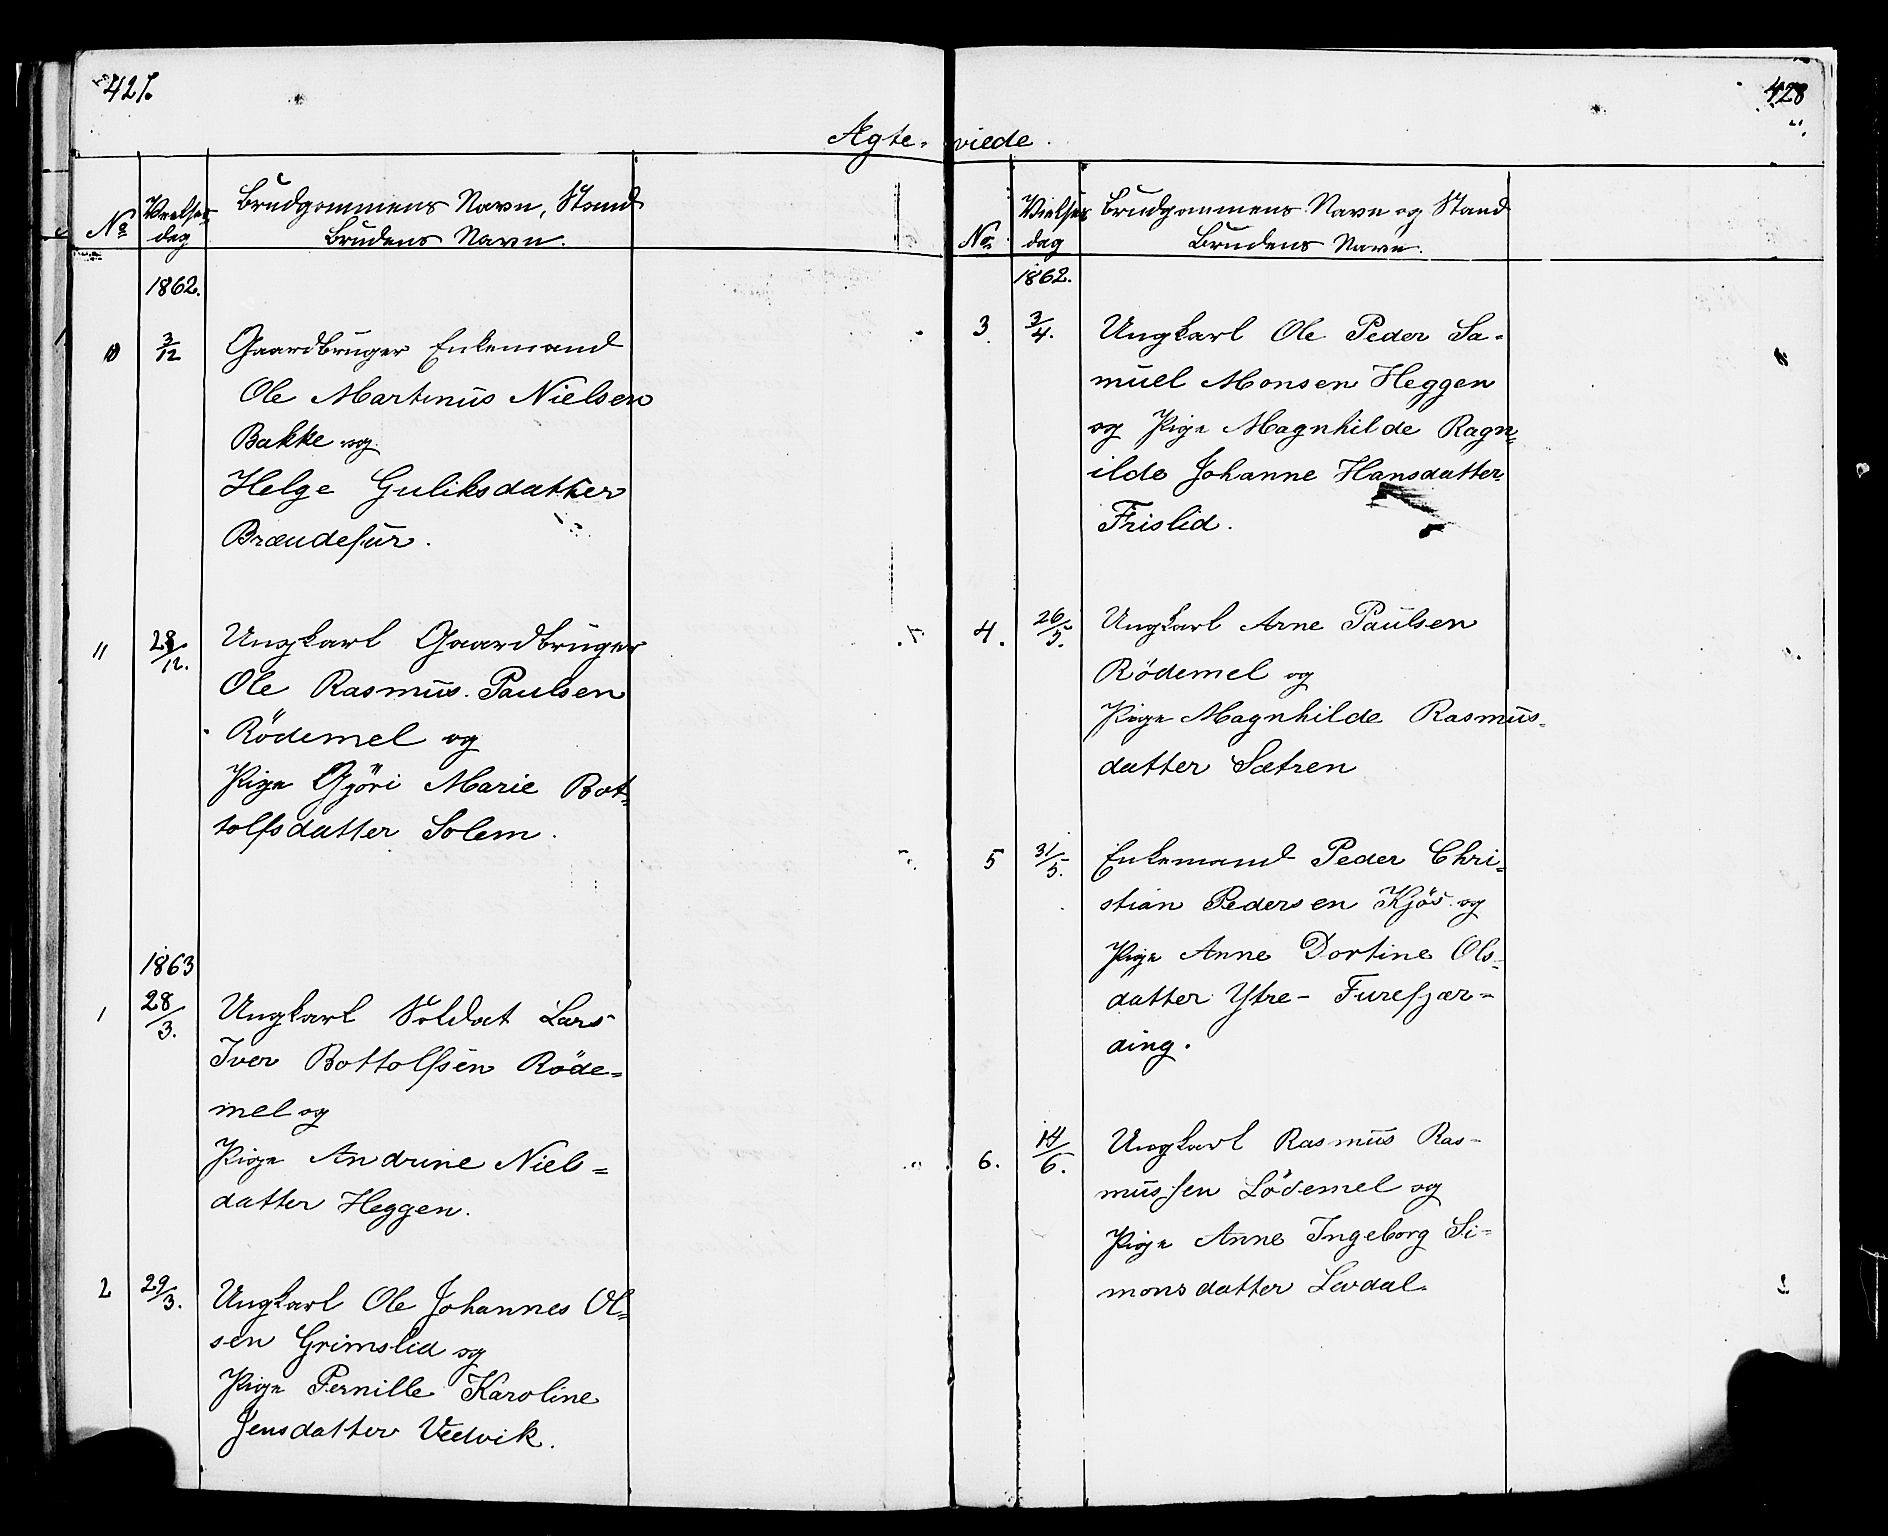 427.
Ægte-
No Vielses dag Brudgommens Navn, Stand
Brudens Navn.
1862.
10 3/12 Gaardbruger Enkemand
Ole Martinus Nielsen
Bakke og
Helge Guliksdatter
Brændefur.
11 28/12. Ungkarl Gaardbruger
Ole Rasmus Paulsen
Rödemel og
Pige Gjöri Marie Bot-
tolfsdatter Solem.
1863
1 28/3. Ungkarl Soldat Lars
Iver Bottolfsen Röde=
mel og
Pige Andrine Niels=
datter Heggen.
2 29/3. Ungkarl Ole Johannes Ol=
sen Grimslid og
Pige Pernille Karoline
Jensdatter Vedvik.
428
viede.
No. Vielses dag Brudgommens Navn og Stand
Brudens Navn.
1862.
3. 3/4. Ungkarl Ole Peder Sa-
muel Monsen Heggen
og Pige Magnhilde Ragn=
ilde Johanne Hansdatter
Frislid.
4. 26/5. Ungkarl Arne Paulsen
Rödemel og
Pige Magnhilde Rasmus-
datter Sætren
5 31/5. Enkemand Peder Chri-
stian Pedersen Kjös og
Pige Anne Dortine Ols=
datter Ytre- Furefjær=
ding.
6. 14/6. Ungkarl Rasmus Ras-
mussen Lödemel og
Pige Anne Ingeborg Si=
monsdatter Levdal.